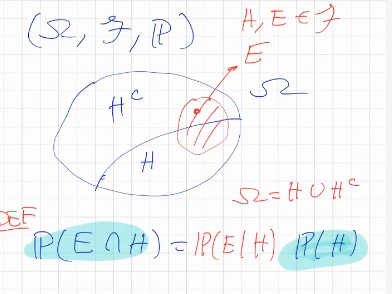 (Ω, ℱ, ℙ)
H, E ∈ ℱ
E
Ω
H^c
H
Ω = H ∪ H^c
DEF
ℙ(E ∩ H) = ℙ(E | H) ℙ(H)